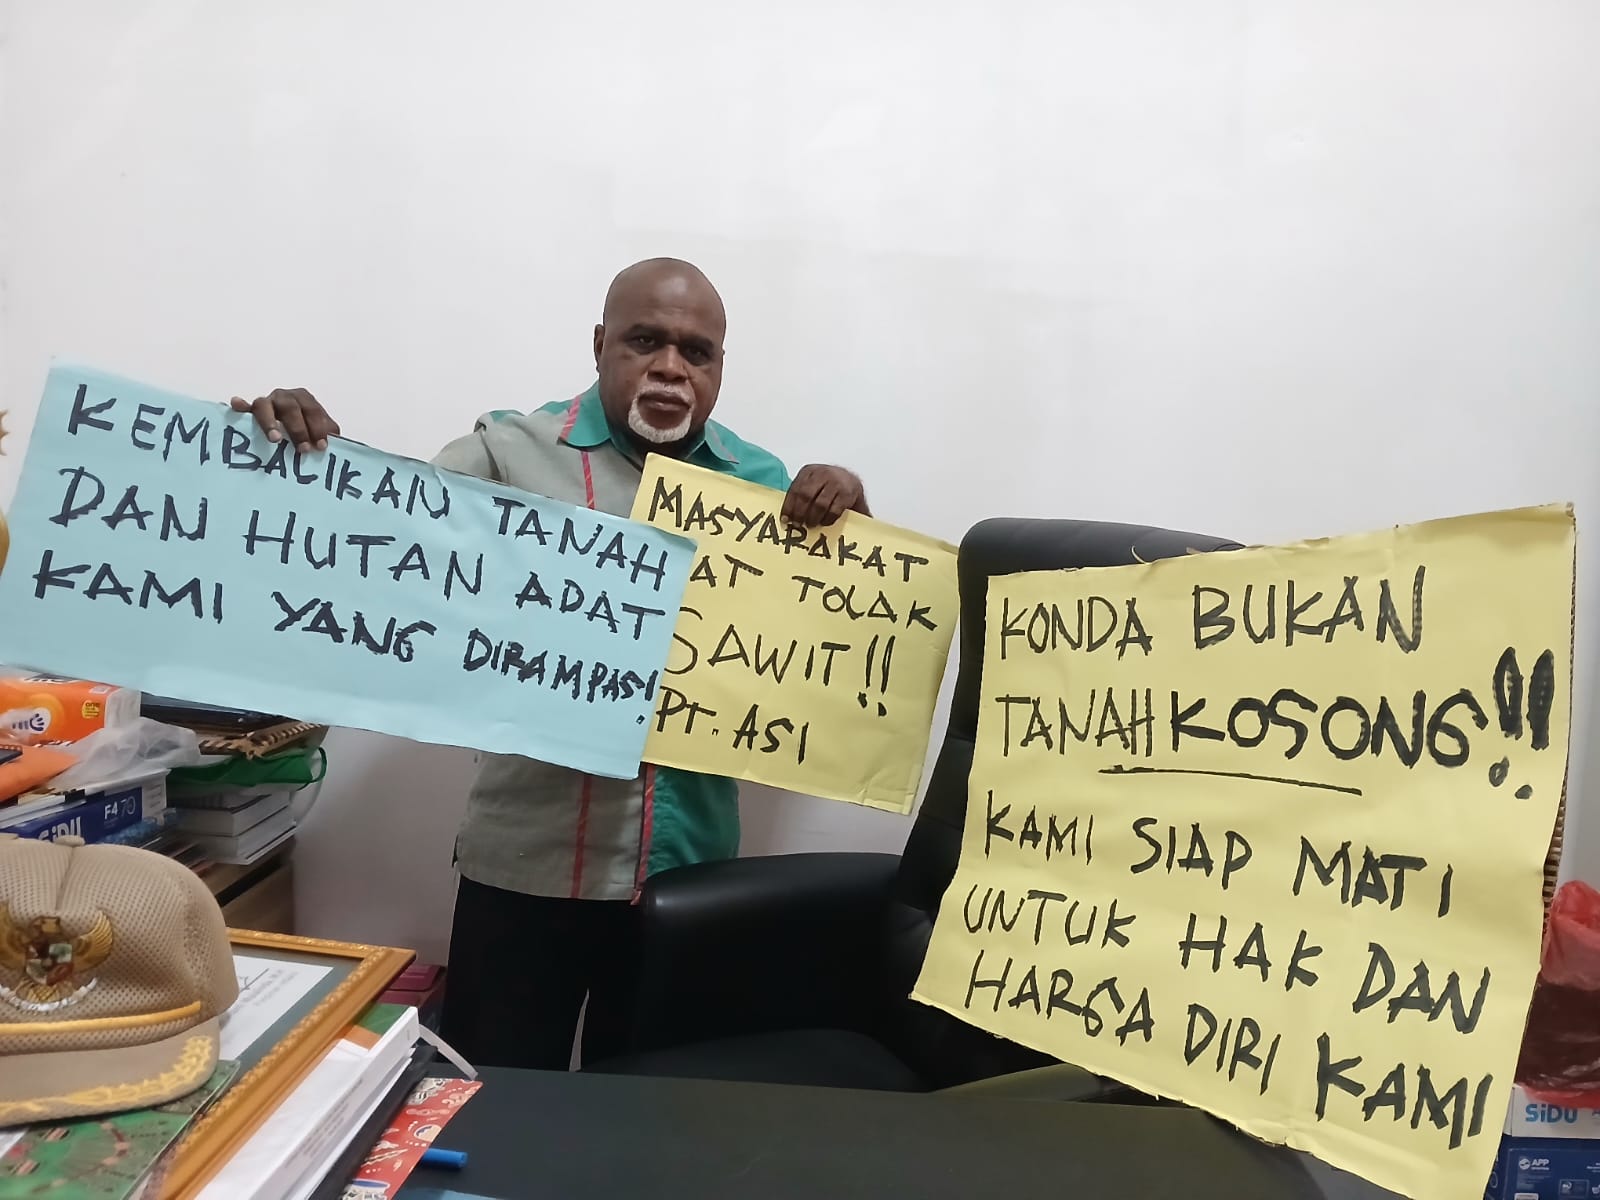 KEMBALIKAN TANAH
DAN HUTAN ADAT
KAMI YANG DIRAMPAS!
MASYARAKAT
AT TOLAK
SAWIT!!
PT. ASI
KONDA BUKAN
TANAH KOSONG!!
KAMI SIAP MATI
UNTUK HAK DAN
HARGA DIRI KAMI
SiDU
F4 70
SiDU
APP